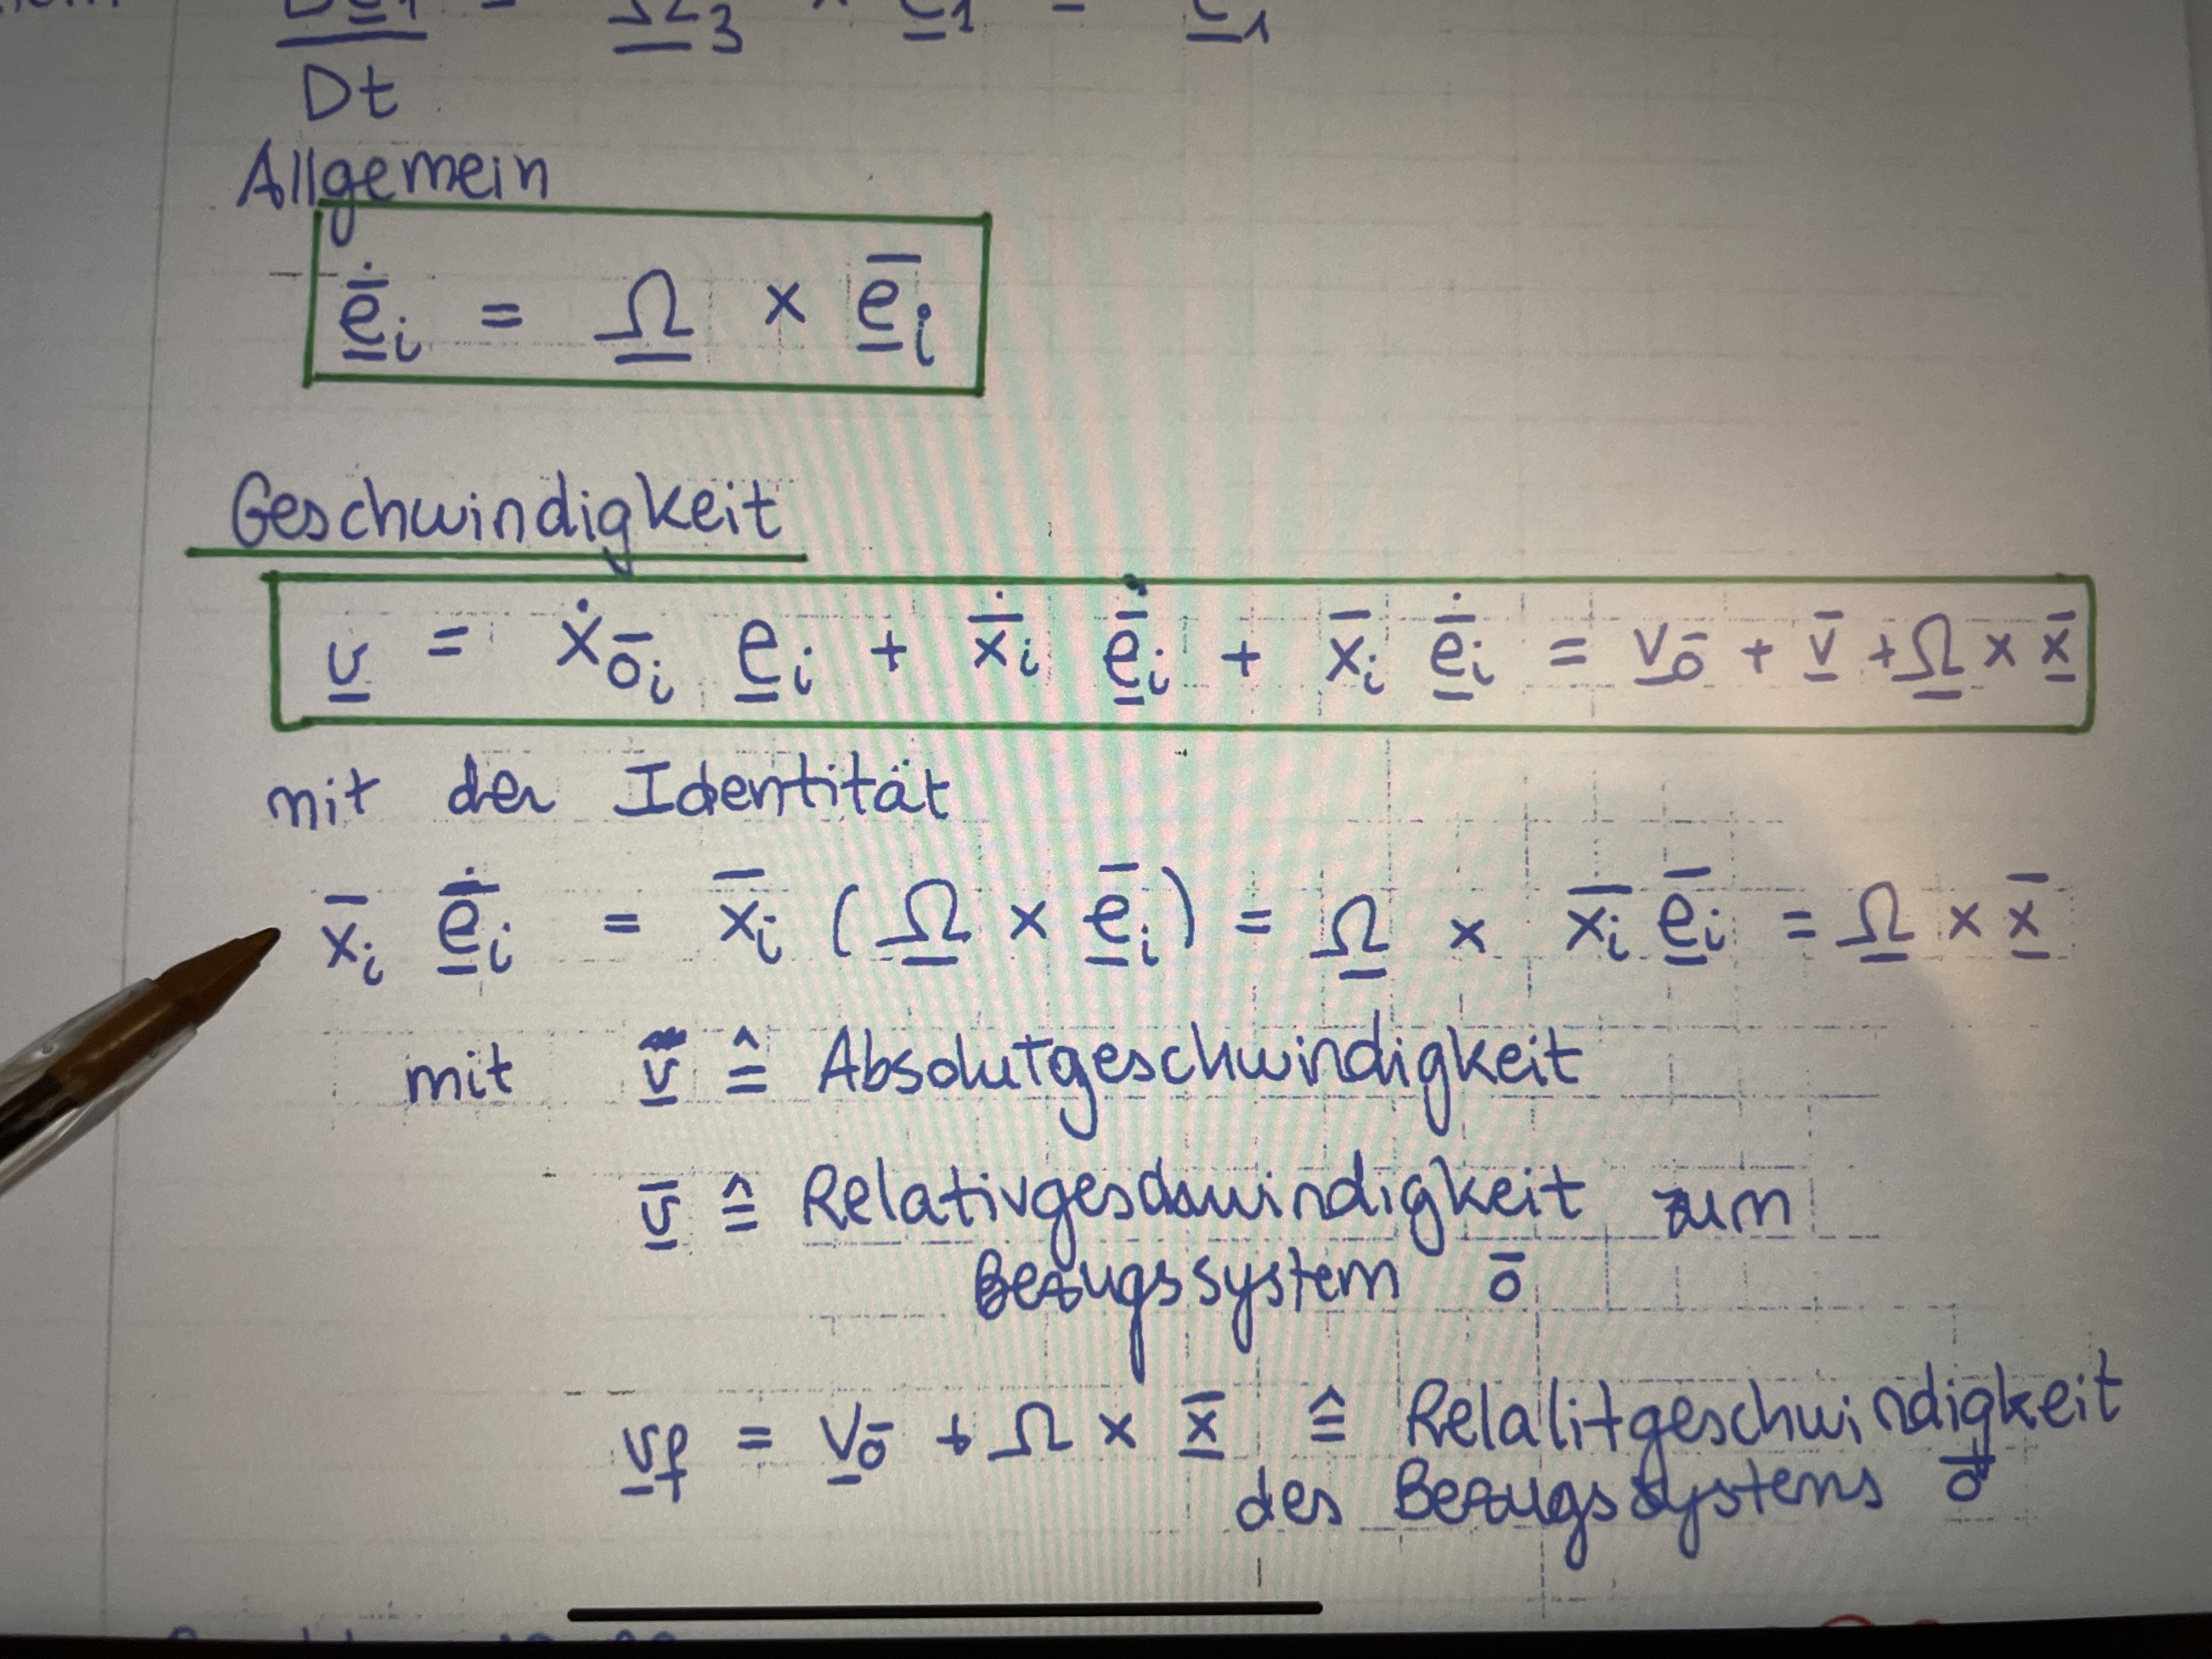 Dt
Allgemein
ė̲̅ᵢ = Ω̲ × e̲̅ᵢ
Geschwindigkeit
v̲ = ẋō̄ᵢ e̲ᵢ + ẋ̅ᵢ ė̲̅ᵢ + x̅ᵢ ė̲̅ᵢ = v̲ō + v̲̅ + Ω̲ × x̲̅
mit der Identität
x̅ᵢ ė̲̅ᵢ = x̅ᵢ (Ω̲ × e̲̅ᵢ) = Ω̲ × x̅ᵢ e̲̅ᵢ = Ω̲ × x̲̅
mit v̲ ≙ Absolutgeschwindigkeit
v̲̅ ≙ Relativgeschwindigkeit zum
Bezugssystem ō
v̲f = v̲ō + Ω × x̲̅ ≙ Relalitgeschwindigkeit
des Bezugssystems ō